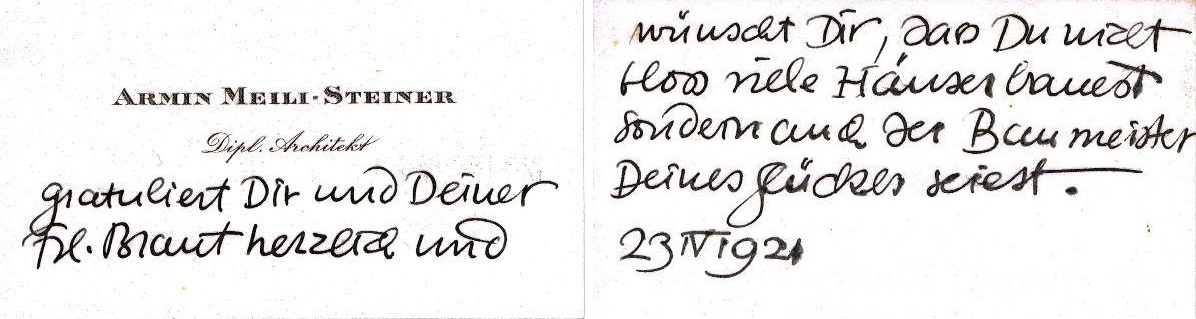 ARMIN MEILI-STEINER
Dipl. Architekt
gratuliert Dir und Deiner
Frl. Braut herzlich und
wünscht Dir, dass Du nicht
bloss viele Häuser bauest
sondern auch der Baumeister
Deines Glückes seiest.
23 IV 1921